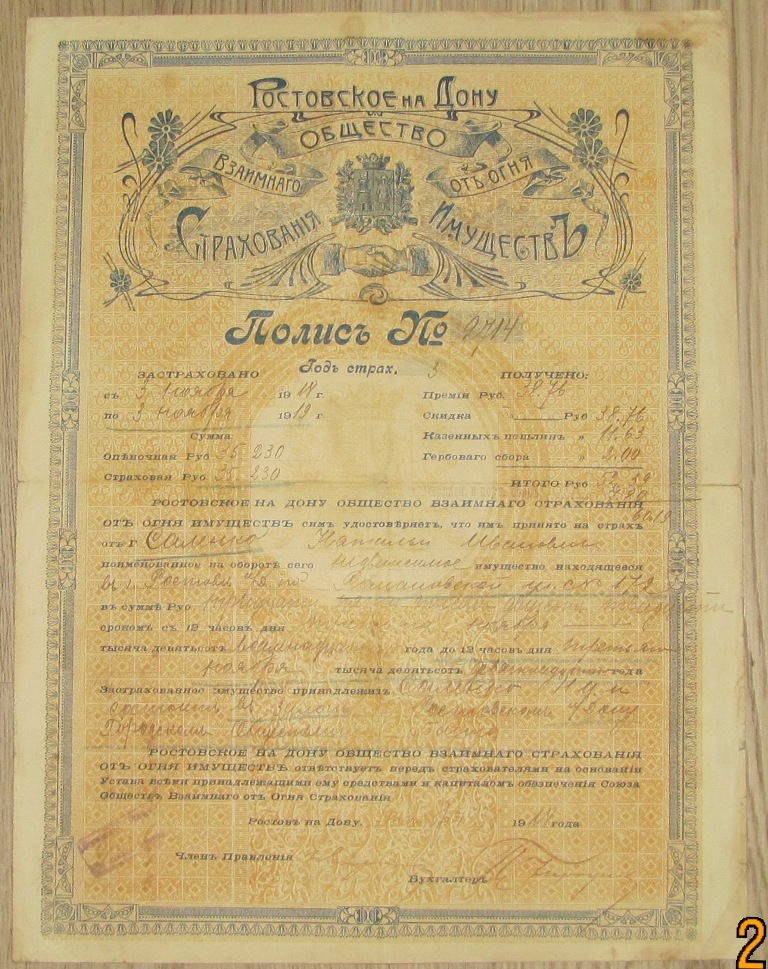 Ростовское на Дону
Общество
Взаимнаго отъ огня
Страхованія Имуществъ
Полисъ № 9714
Годъ страх. 3
ЗАСТРАХОВАНО
съ 3 Ноября 1918 г.
по 3 Ноября 1919 г.
Сумма
Оцѣночная Руб 35 230
Страховая Руб 35.230
ПОЛУЧЕНО:
Преміи Руб. 38.76
Скидка Руб 38.76
Казенныхъ пошлинъ „ 11.63
Гербоваго сбора „ 2.00
ИТОГО Руб 52.39
7.80
60.19
РОСТОВСКОЕ НА ДОНУ ОБЩЕСТВО ВЗАИМНАГО СТРАХОВАНІЯ
ОТЪ ОГНЯ ИМУЩЕСТВЪ симъ удостовѣряетъ, что имъ принято на страхъ
отъ Г Саленко Натальи
поименованное на оборотѣ сего недвижимое имущество находящееся
въ г. Ростовѣ н/Д по ул. № 172
въ суммѣ Руб
срокомъ съ 12 часовъ дня ноября
тысяча девятьсотъ Восемнадцат года до 12 часовъ дня третьяго
ноября тысяча девятьсотъ года
Застрахованное имущество принадлежитъ Саленко Н
состоитъ въ залогѣ Ростовскомъ н/Дону
Городскомъ
РОСТОВСКОЕ НА ДОНУ ОБЩЕСТВО ВЗАИМНАГО СТРАХОВАНІЯ
ОТЪ ОГНЯ ИМУЩЕСТВЪ отвѣтствуетъ передъ страхователями на основаніи
Устава всѣми принадлежащими ему средствами и капиталомъ обезпеченія Союза
Обществъ Взаимнаго отъ Огня Страхованія
Ростовъ на Дону. 1918 года
Членъ Правленія
Бухгалтеръ
2